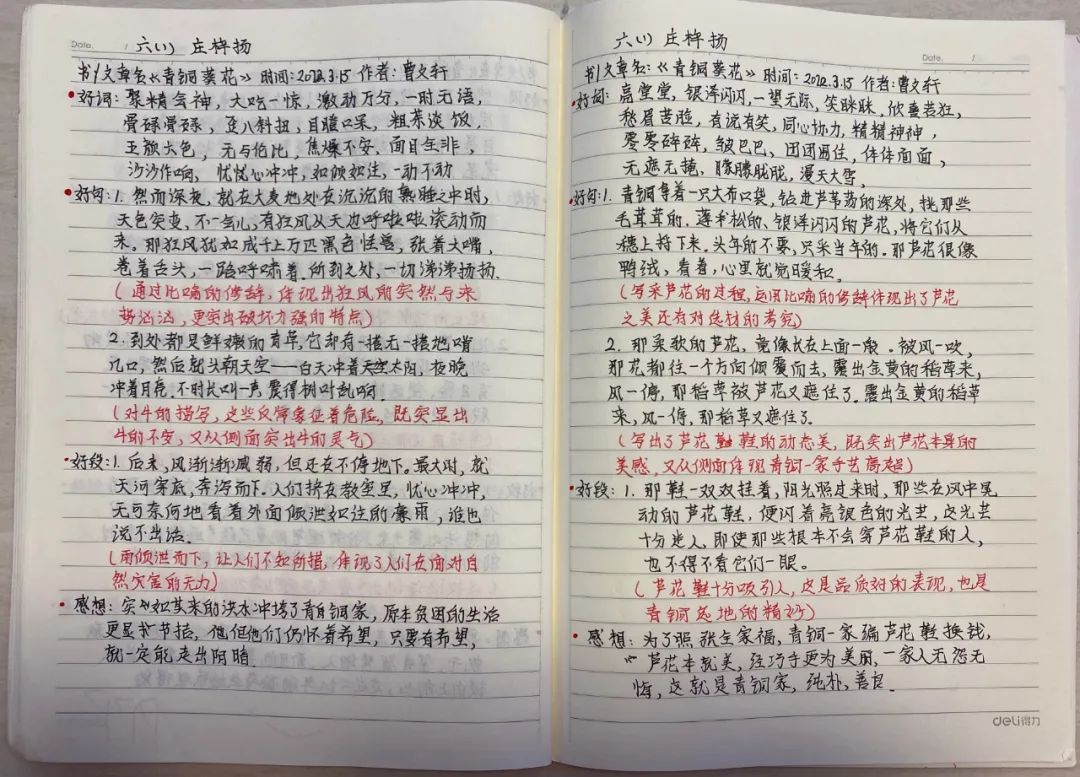 Date. /
六(1) 庄梓扬
书/文章名:《青铜葵花》 时间:2022.3.15 作者:曹文轩
•好词:聚精会神,大吃一惊,激动万分,一时无语,
骨碌骨碌,歪八斜扭,目瞪口呆,粗茶淡饭,
无与伦比,焦燥不安,面目全非,
沙沙作响,忧忧心冲冲,如倾如注,一动不动
•好句:1.然而深夜,就在大麦地处在沉沉的熟睡之中时,
天色突变,不一会儿,有狂风从天边呼啦啦滚动而
来。那狂风犹如成千上万匹黑色怪兽,张着大嘴,
卷着舌头,一路呼啸着.所到之处,一切沸沸扬扬.
(通过比喻的修辞,体现出狂风的突然与来
势汹汹,更突出破坏力强的特点)
2.到处都是鲜嫩的青草,它却有一搭无一搭地啃
几口,然后就头朝天空——白天冲着天空太阳,夜晚
冲着月亮.不时长叫一声,震得树叶乱响.
(对牛的描写,这些反常象征着危险,既突显出
牛的不安,又从侧面突出牛的灵气)
•好段:1.后来,风渐渐减弱,但还在不停地下.最大时,就
天河穿底,奔泻而下.人们挤在教室里,忧心冲冲,
无可奈何地看着外面倾泄如注的暴雨,谁也
说不出话.
(雨倾泄而下,让人们不知所措,体现了人们在面对自
然灾害的无力)
•感想:突如其来的洪水冲垮了青铜家,原本贫困的生活
更显拮据,但他们仍怀着希望,只要有希望,
就一定能走出阴暗.
六(1) 庄梓扬
Date. /
书/文章名:《青铜葵花》 时间:2022.3.15 作者:曹文轩
•好词:高堂堂,银洋闪闪,一望无际,笑眯眯,欣喜若狂,
愁眉苦脸,有说有笑,同心协力,精精神神,
零零碎碎,皱巴巴,团团围住,体体面面,
无遮无掩,朦朦胧胧,漫天大雪,
•好句:1.青铜拿着一只大布口袋,钻进芦苇荡的深处,挑那些
毛茸茸的.蓬千松的.银洋闪闪的芦花,将它们从
穗上捋下来.头年的不要,只采当年的.那芦花很像
鸭绒,看着,心里就觉暖和.
(写采芦花的过程,运用比喻的修辞体现出了芦花
之美还有对选材的考究)
2.那柔软的芦花,竟像长在上面一般.被风一吹,
那花都往一个方向倾覆而去,露出金黄的稻草来,
风一停,那稻草被芦花又遮住了.露出金黄的稻草
来,风一停,那稻草又遮住了.
(写出了芦花鞋的动态美,既突出芦花本身的
美感,又从侧面体现青铜一家手艺高超)
•好段:1.那鞋一双双挂着,阳光照过来时,那些在风中晃
动的芦花鞋,便闪着亮银色的光芒,这光芒
十分迷人,即使那些根本不会穿芦花鞋的人,
也不得不看它们一眼。
(芦花鞋十分吸引人,这是品质好的表现,也是
青铜
•感想:为了照张全家福,青铜一家编芦花鞋换钱,
芦花本就美,经巧手更为美丽,一家人无怨无
悔,这就是青铜家,纯朴,善良.
deli得力